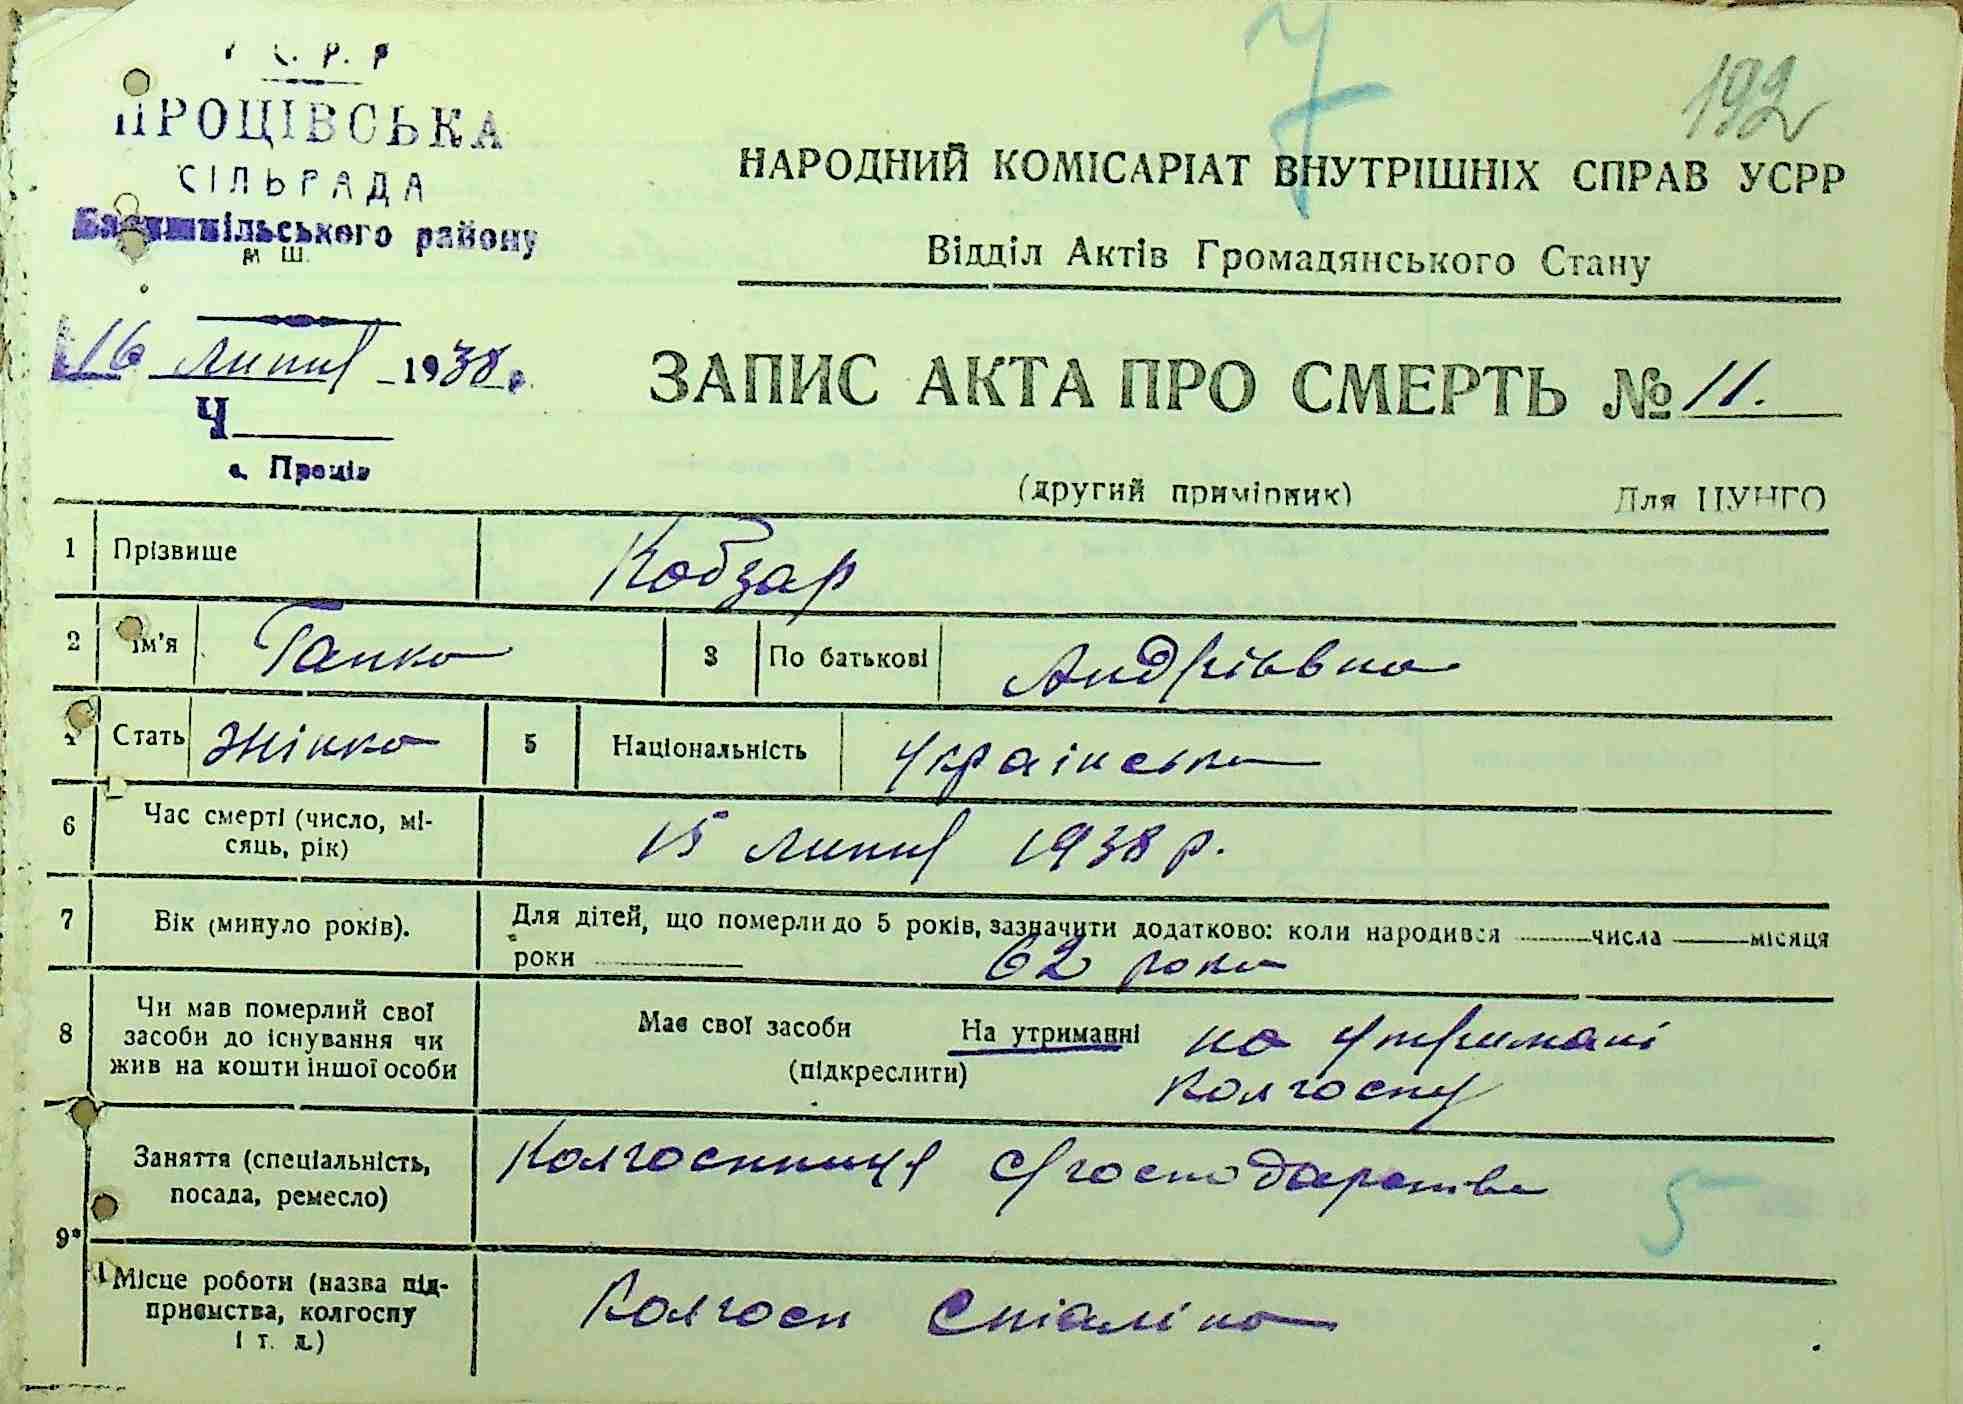 У.С.Р.Р
ПРОЦІВСЬКА
СІЛЬРАДА
Бориспільського району
М Ш.
16 липня 1938 р.
Ч
с. Проців
7
192
НАРОДНИЙ КОМІСАРІАТ ВНУТРІШНІХ СПРАВ УСРР
Відділ Актів Громадянського Стану
ЗАПИС АКТА ПРО СМЕРТЬ № 11.
(другий примірник) Для ЦУНГО
1 Прізвище Кобзар
2 Ім'я Ганна 3 По батькові Андріївна
4 Стать жінка 5 Національність українська
6 Час смерті (число, мі-
сяць, рік) 15 липня 1938 р.
7 Вік (минуло років). Для дітей, що померли до 5 років, зазначити додатково: коли народився числа місяця
роки 62 роки
8 Чи мав померлий свої
засоби до існування чи
жив на кошти іншої особи
Має свої засоби На утриманні на утримані
(підкреслити) колгоспу
9* Заняття (спеціальність,
посада, ремесло)
Колгоспниця с/господарства
5
Місце роботи (назва під-
приємства, колгоспу
і т. д.)
Колгосп Сталіна